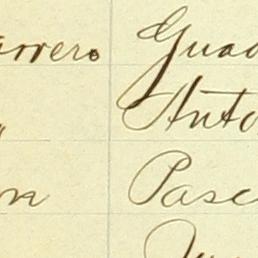 arrero Guad
" Anto
on Pasc